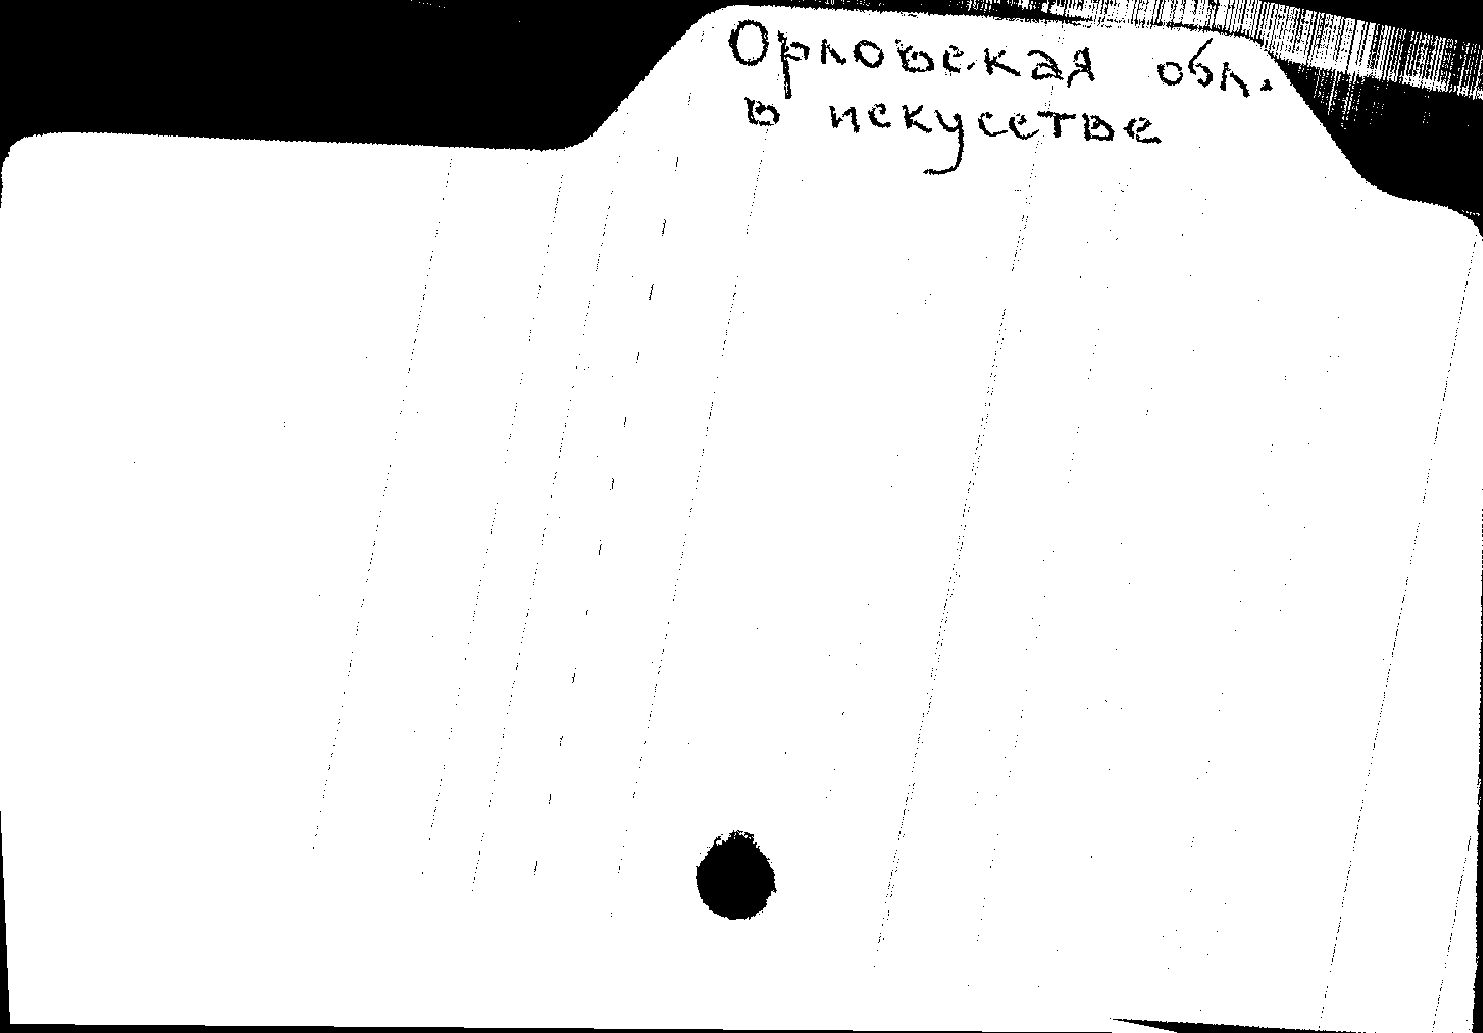 Орловская обл.
в искусстве